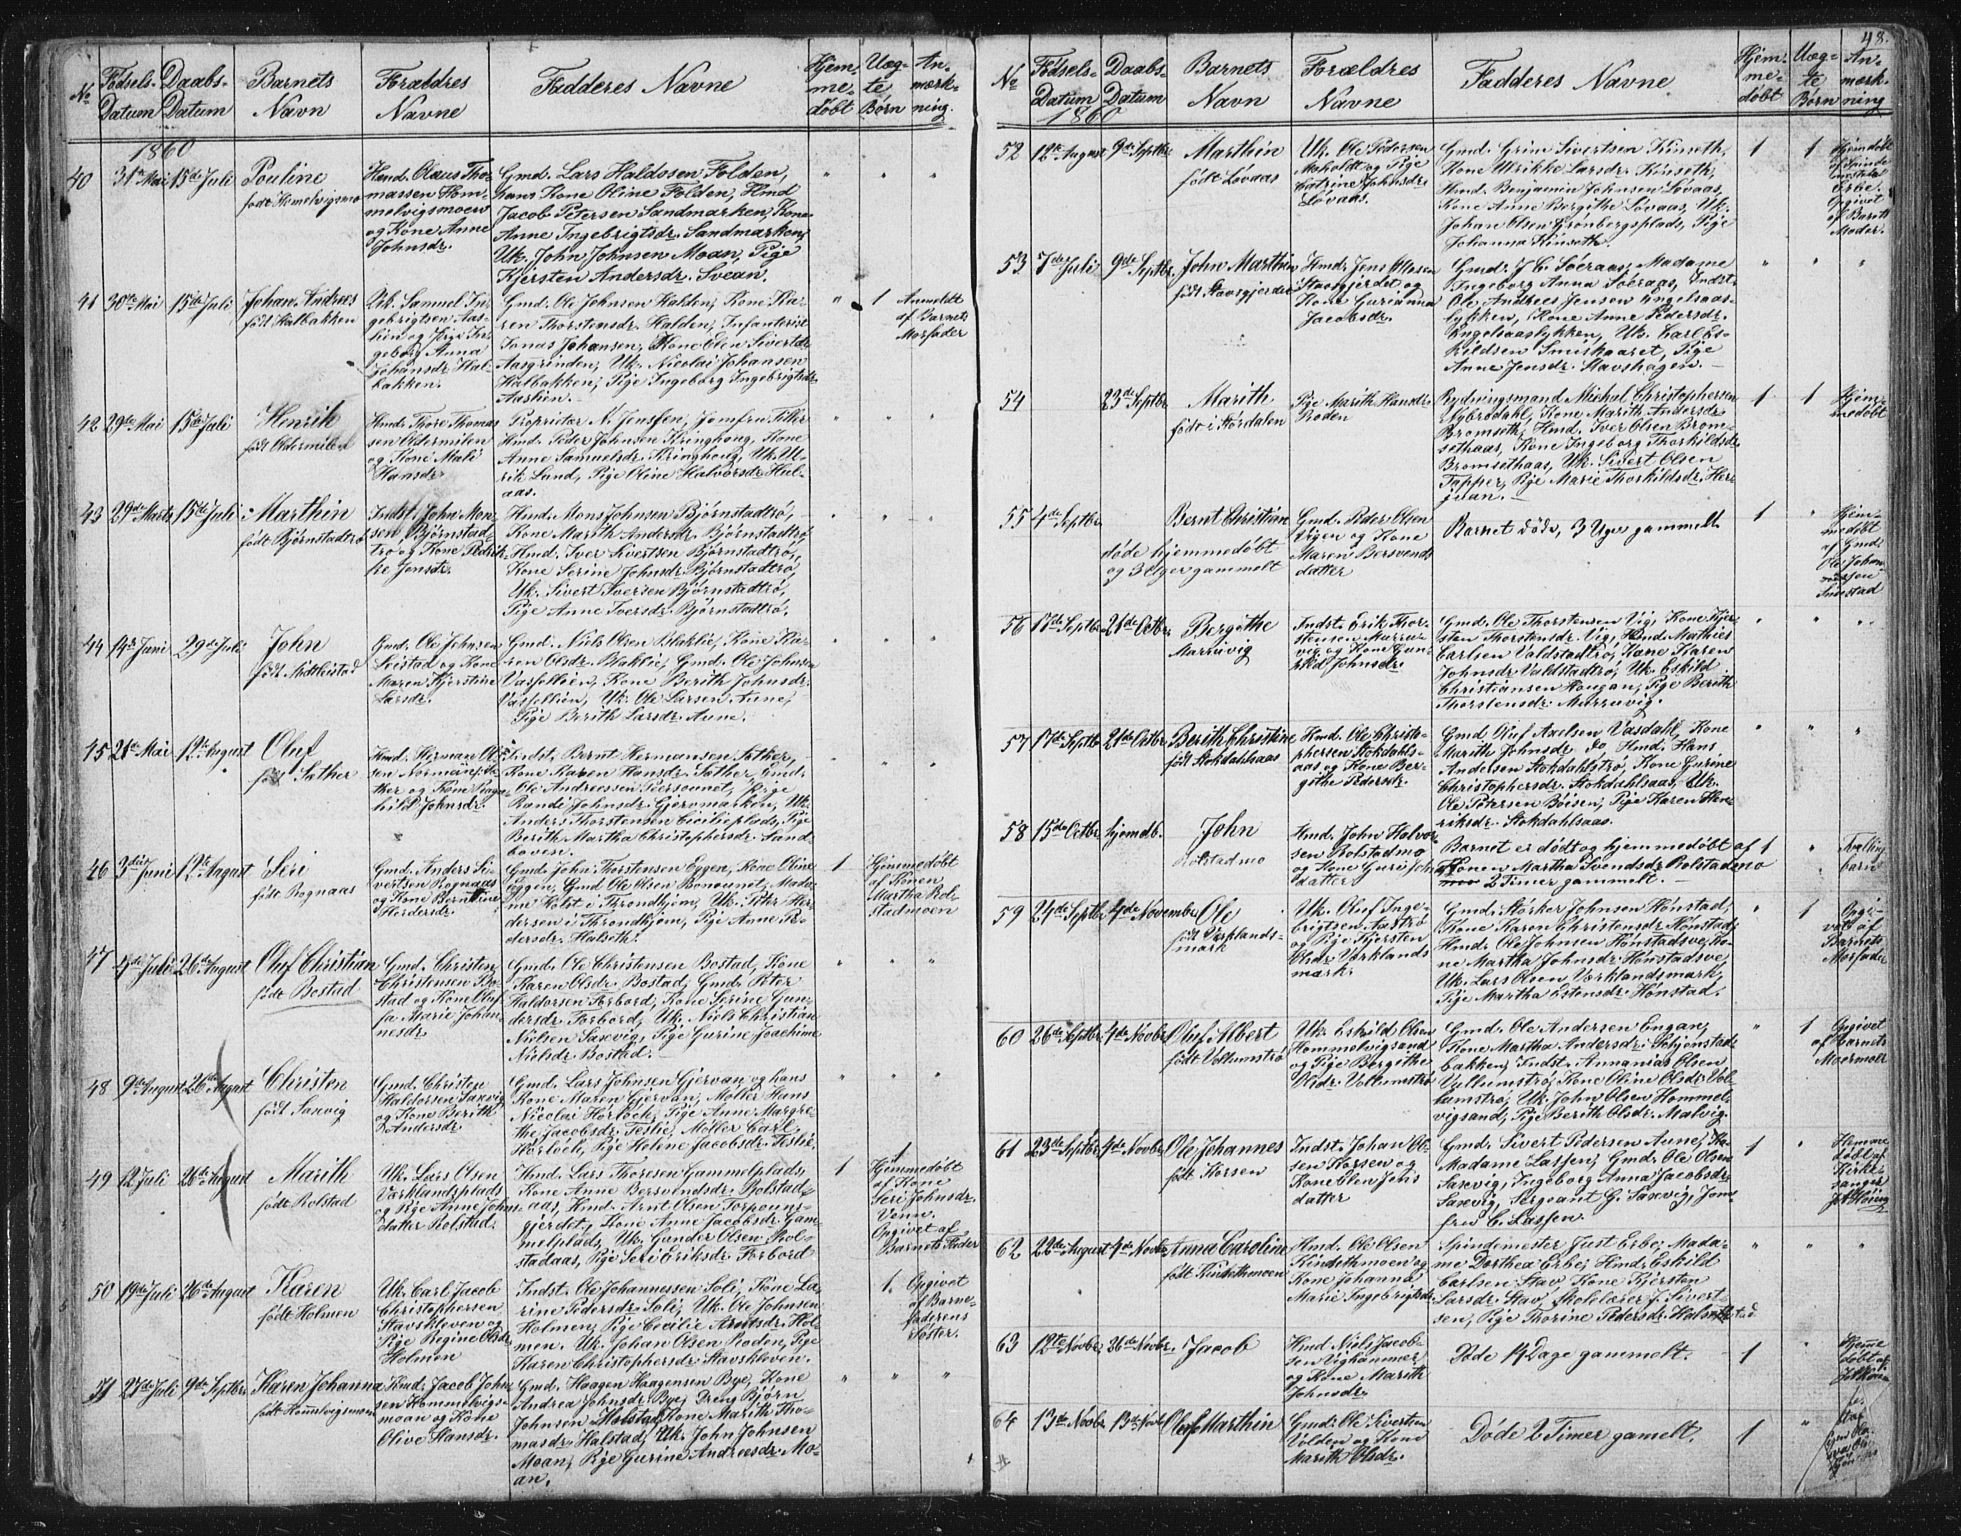 48.
No
Fødsels-
Datum
Daabs-
Datum
Barnets
Navn
Forældres
Navne
Fadderes Navne
Hjem-
me-
døbt
Uæg-
te
Børn
An-
mærk-
ning.
1860
40
31te Mai
15de Juli
Pouline
født Homelvigsmo
Hmd. Olaus Tho-
massen Hom-
melvigsmoen
og Kone Anne
Johnsdr.
Gmd. Lars Haldosen Folden,
hans Kone Oline Folden, Hmd
Jacob Petersen Sandmarken, Kone
Anne Ingebrigtsdr. Sandmarken,
Uk. John Johnsen Moan, Pige
Kjersten Andersdr. Svean.
41
30te Mai
15de Juli
Johan Andreas
født Halbakken
Uk. Samuel In-
gebrigtsen Aas-
hien og Pige In-
geborg Anna
Johansdr. Hal-
bakken.
Gmd. Ole Johnsen Halden, Kone Ka-
ren Thorstensdr. Halden, Infanterist
Jonas Johansen, Kone Olen Sivertdr.
Aasgrinden, Uk. Nicolai Johansen
Halbakken, Pige Ingeborg Ingebrigtsdr.
Aashien.
1
Anmeldt
af Barnets
Morfader
42
29de Mai
15de Juli
Henrik
født Oldermilen
Hmd. Thore Thomas
sen Oldermilen
og Kone Mali
Hansdr.
Proprietær N. Jenssen, Jomfru Filler
Hmd. Peder Johnsen Kringhoug, Kone
Anne Samuelsdr. Kringhoug, Uk. Ul-
rik Lund, Pige Oline Halvorsdr. Hul-
aas.
43
29de Marts
15de Juli
Marthin
født Bjørnstadtrø
Indst. John Mon-
sen Bjørnstad-
trø og Kone Pedrik-
ke Jensdr.
Hmd. Mons Johnsen Bjørnstadtrø,
Kone Marith Andersdr. Bjørnstadtrø
Hmd. Iver Sivertsen Bjørnstadtrø,
Kone Serine Johnsdr. Bjørnstadtrø,
Uk. Sivert Iversen Bjørnstadtrø,
Pige Anne Iversdr. Bjørnstadtrø.
44
14de Juni
29de Juli
John
født Midtleistad
Gmd. Ole Johnsen
Leistad og Kone
Maren Kjerstine
Larsdr.
Gmd. Niels Olsen Blaklie, Kone Ka-
ren Olsdr. Blaklie, Gmd. Ole Johnsen
Vasselien, Kone Berith Johnsdr.
Vasselien, Uk. Ole Larsen Aune,
Pige Berith Larsdr. Aune.
45
21de Mai
12te August
Oluf
født Sæther
Hmd. Herman Ol-
sen
ther og Kone Ragn-
hild Johnsdr.
Indst. Bernt Hermansen Sæther,
Kone Karen Hansdr. Sæther, Gmd.
Ole Andreassen Piersounet, Pige
Randi Johnsdr. Gjervmarken, Uk.
Anders Thorstensen Ceciliaplads, Pige
Berith Martha Christophersdr. Sand
46
3die Juni
12te August
Siri
født Rognaas
Gmd. Anders Si-
vertsen Rognaas
og Kone Berntine
Hordersdr.
Gmd. John Thorstensen Eggen, Kone Oline
Eggen, Gmd Ole Olsen Bonounet, Mada-
me Holst i Throndhjem, Uk. Petter Hen-
dersen i Throndhjem, Pige Anne Pe-
dersdr. Halseth.
1
Hjemmedøbt
af Konen
Martha Rol-
stadmoen
47
4de Juli
26de August
Oluf Christian
født Bostad
Gmd. Christen
Christensen Bo-
stad og Kone Oluf-
fa Marie Johan-
nesdr.
Gmd. Ole Christensen Bostad, Kone
Karen Olsdr. Bostad, Gmd. Peter
Haldorsen Forbord, Kone Serine Gun-
dersdr. Forbord, Uk. Niels Christian
Nielsen Saxvig, Pige Gurine Joachime
Nielsdr. Bostad.
48
9de August
26de August
Christen
født Saxvig
Gmd. Christen
Haldorsen Saxvig
og Kone Berith
Andersdr.
Gmd. Lars Johnsen Gjervan og hans
Kone Maren Gjervan, Møller Hans
Nicolai Hørløck, Pige Anne Margre-
the Jacobsdr. Feslie, Møller Carl
Hørløck, Pige Helene Jacobsdr. Feslie.
49
12 Juli
26de August
Marith
født Rolstad
Uk. Lars Olsen
Varklandsplads
og Pige Anne Johns
datter Rolstad.
Hmd. Lars Thoresen Gammelplads,
Kone Anne Bersvendsdr. Rolstad-
aas, Hmd. Arnt Olsen Torpouns-
gjerdet, Kone Anne Jacobsdr. Gam-
melplads, Uk. Gunder Olsen Rol-
stadaas, Pige Seri Eriksdr. Forbord
1
1
Hjemmedøbt
af Kone
Seri Johnsdr.
Venn.
Opgivet af
Barnets Fader
50
19de Juli
26de August
Karen
født Holmen
Uk. Carl Jacob
Christophersen
Stavskleven og
Pige Regine Olsdr.
Holmen
Indst. Ole Johannessen Soli, Kone La-
rine Pedersdr. Soli, Uk. Ole Johnsen
Holmen, Pige Cecilie Arntsdr. Hol-
men. Uk. Johan Olsen Roden, Pige
Karen Christophersdr. Stavskleven.
1.
Opgivet
af Barne-
faderens
Søster.
51
27de Juli
9de Septbr.
Karen Johanna
født Homelvigsmoen
Hmd. Jacob John-
sen Hommelvigs-
moan og Kone
Olive Hansdr.
Gmd. Haagen Haagensen Bye, Kone
Andrea Johnsdr. Bye, Dreng Bjørn
Johnsen Halstad, Kone Marith Tho-
masdr. Halstad, Uk. John Johnsen
Moan, Pige Gurine Andreasdr. Mo-
an.
No
Fødsels-
Datum
Daabs-
Datum
Barnets
Navn
Forældres
Navne
Fadderes Navne
Hjem-
me-
døbt
Uæg-
te
Børn
An-
mærk-
ning
1860
52
12te August
9de Septbr.
Marthin
født Lovaas
Uk. Ole Pedersen
Moholdt og Pige
Catrine Johnsdr.
Lovaas.
Gmd. Grim Sivertsen Kinseth,
Kone Ulrikke Larsdr. Kinseth,
Hmd. Benjamin Johnsen Lovaas,
Kone Anne Bergithe Lovaas, Uk.
Johan Olsen Grønbergsplads, Pige
Johanna Kinseth.
1
1
Hjemdøbt
af Spinde
mester
Erbe.
Opgivet
af Barnets
Moder.
53
7de Juli
9de Septbr.
John Marthin
født Stavsgjerdet
Hmd. Jens Olsen
Stavsgjerdet og
Kone Gurianna
Jacobsdr.
Gmd. J. C. Søeraas, Madame
Ingeborg Anna Søeraas, Indst.
Ole Andreas Jensen Engelsaas-
lykken, Kone Anne Pedersdr.
Engelsaaslykken, Uk. Carl Es-
kildsen Smiskaaret, Pige
Anne Jensdr. Stavshagen.
54
23de Septbr
Marith
født i Størdalen
Pige Marith Hansdr
Roden
Rydningsmand Michal Christophersen
Nybrodahl, Kone Marith Andersdr.
Bromseth, Hmd. Iver Olsen Brom-
sethaas, Kone Ingeborg Thorkildsdr.
Bromsethaas, Uk. Sivert Olsen
Tapper, Pige Marie Thorkildsdr. Her-
juan.
1
1
Hjem-
medøbt
55
4de Septbr.
døde hjemmedøbt
og 3 Uger gammelt
Bernt Christian
Gmd. Peder Olsen
Vigen og Kone
Maren Bersvends
datter
Barnet døde, 3 Uger gammelt
1
Hjem-
medøbt
af Gmd.
Ole Johan-
nessen
56
17de Septbr
21de Octbr.
Bergithe
Marruvig
Indst. Erik Thor-
stensen Marru-
vig og Kone Gun-
hild Johnsdr.
Gmd. Ole Thorstensen Vig, Kone Kjer-
sten Thorstensdr. Vig, Hmd. Mathias
Carlsen Valdstadtrø, Kone Karen
Johnsdr. Valdstadtrø, Uk. Eskild
Christiansen Hougan, Pige Berith
Thorstensdr. Marruvig.
57
17de Septbr
21de Octbr.
Berith Christine
født Stokdahlsaas
Hmd. Ole Christo-
phersen Stokdahls-
aas og Kone Ber-
githe Pedersdr.
Gmd. Oluf Axelsen Vasdahl, Kone
Marith Johnsdr. do Hmd. Hans
Andersen Stokdahlstrø, Kone Gurine
Christophersdr. Stokdahlsaas, Uk.
Ole Petersen Boisen, Pige Karen Hen-
riksdr. Stokdahlsaas.
58
15de Octbr.
hjemdb.
John
Rolstadmo
Hmd. John Halvor-
sen Rolstadmo
og Kone Guri John
datter
Barnet er dødt og hjemmedøbt af
Konen Martha Svendsdr. Rolstadmo
2 Timer gammelt.
1
Tvilling
barn
59
24de Septbr
4de Novembr
Ole
født Varklands-
mark
Uk. Oluf Inge-
brigtsen Aastrø
og Pige Kjersten
Olsdr. Varklands
mark.
Gmd. Størker Johnsen Hønstad,
Kone Karen Christensdr. Hønstad
Hmd. Ole Johnsen Hønstadsve, Ko-
ne Martha Johnsdr. Hønstadsve,
Uk. Lars Olsen Varklandsmark,
Pige Martha Estensdr. Hønstad.
1
Opgi-
vet af
Barnets
Morfader
60
26de Septbr.
4de Novbr.
Oluf Albert
født Vullumstrø
Uk. Eskild Olsen
Hommelvigsand
og Pige Bergithe
Olsdr. Vullumstrø
Gmd. Ole Andersen Engan,
Kone Martha Andersdr. Schjønstad-
bakken, Indst. Annanias Olsen
Vullumstrø, Kone Oline Olsdr. Vol-
lumstrø, Uk. John Olsen Hommel-
vigsand, Pige Berith Olsdr. Malvig.
1
Opgivet
af Barnets
Moermoer
61
23de Septbr
4de Novbr.
Ole Johannes
født Korsen
Indst. Johan Ol-
sen Korsen og
Kone Olen Johs
datter
Gmd. Sivert Pedersen Aune,
Madame Lassen, Gmd. Ole Olsen
Saxvig, Ingeborg Anna Jacobsdr.
Saxvig, Sergeant G. Saxvig, Jom-
fru C. Lassen.
1
Hemme
døbt af
Kirke-
sanger
62
22de August
4de Novbr
Anna Caroline
født Kindsethmoen
Hmd. Ole Olsen
Kindsethmoen og
Kone Johanna
Marie Ingebrigtsdr.
Spindemester Just Erbe, Mada-
me Dorthea Erbe, Hmd. Eskild
Carlsen Stav, Kone Kjersten
Larsdr. Stav, Skolelærer J. Sivert-
sen, Pige Thorine Pedersdr. Halstad
63
12te Novbr.
26de Novbr.
Jacob
Hmd. Niels Jacob-
sen Vighammer
og Kone Marith
Johnsdr.
Døde 14 Dage gammelt.
1
Hjeme
døbt af
64
13te Novbr.
13de Novbr
Oluf Marthin
Gmd. Ole Sivertsen
Volden og Kone
Marith Olsdr.
Døde 2 Timer gamelt.
1